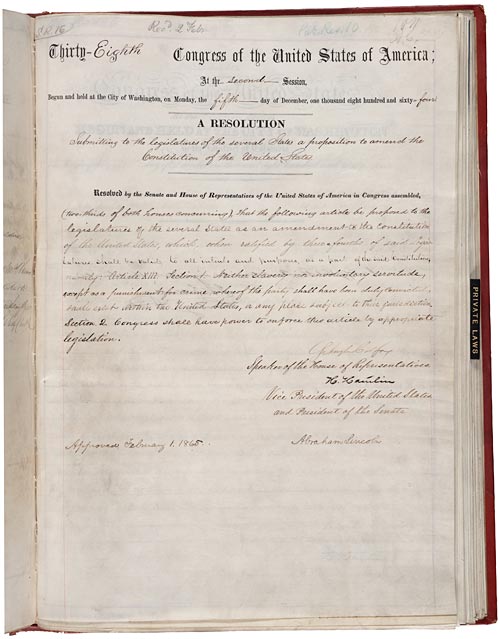 Recd. 2 Feby
Thirty-Eighth Congress of the United States of America;
At the second Session,
Begun and held at the City of Washington, on Monday, the fifth day of December, one thousand eight hundred and sixty-four
A RESOLUTION
Submitting to the legislatures of the several States a proposition to amend the
Constitution of the United States.
Resolved by the Senate and House of Representatives of the United States of America in Congress assembled,
(two-thirds of both houses concurring), That the following article be proposed to the
legislatures of the several States as an amendment to the Constitution
of the United States, which, when ratified by three-fourths of said legis-
latures shall be valid, to all intents and purposes, as a part of the said Constitution,
namely: Article XIII. Section 1. Neither slavery nor involuntary servitude,
except as a punishment for crime whereof the party shall have been duly convicted,
shall exist within the United States, or any place subject to their jurisdiction.
Section 2. Congress shall have power to enforce this article by appropriate
legislation.
Schuyler Colfax
Speaker of the House of Representatives
H. Hamlin
Vice President of the United States
and President of the Senate
Approved, February 1. 1865.
Abraham Lincoln
PRIVATE LAWS